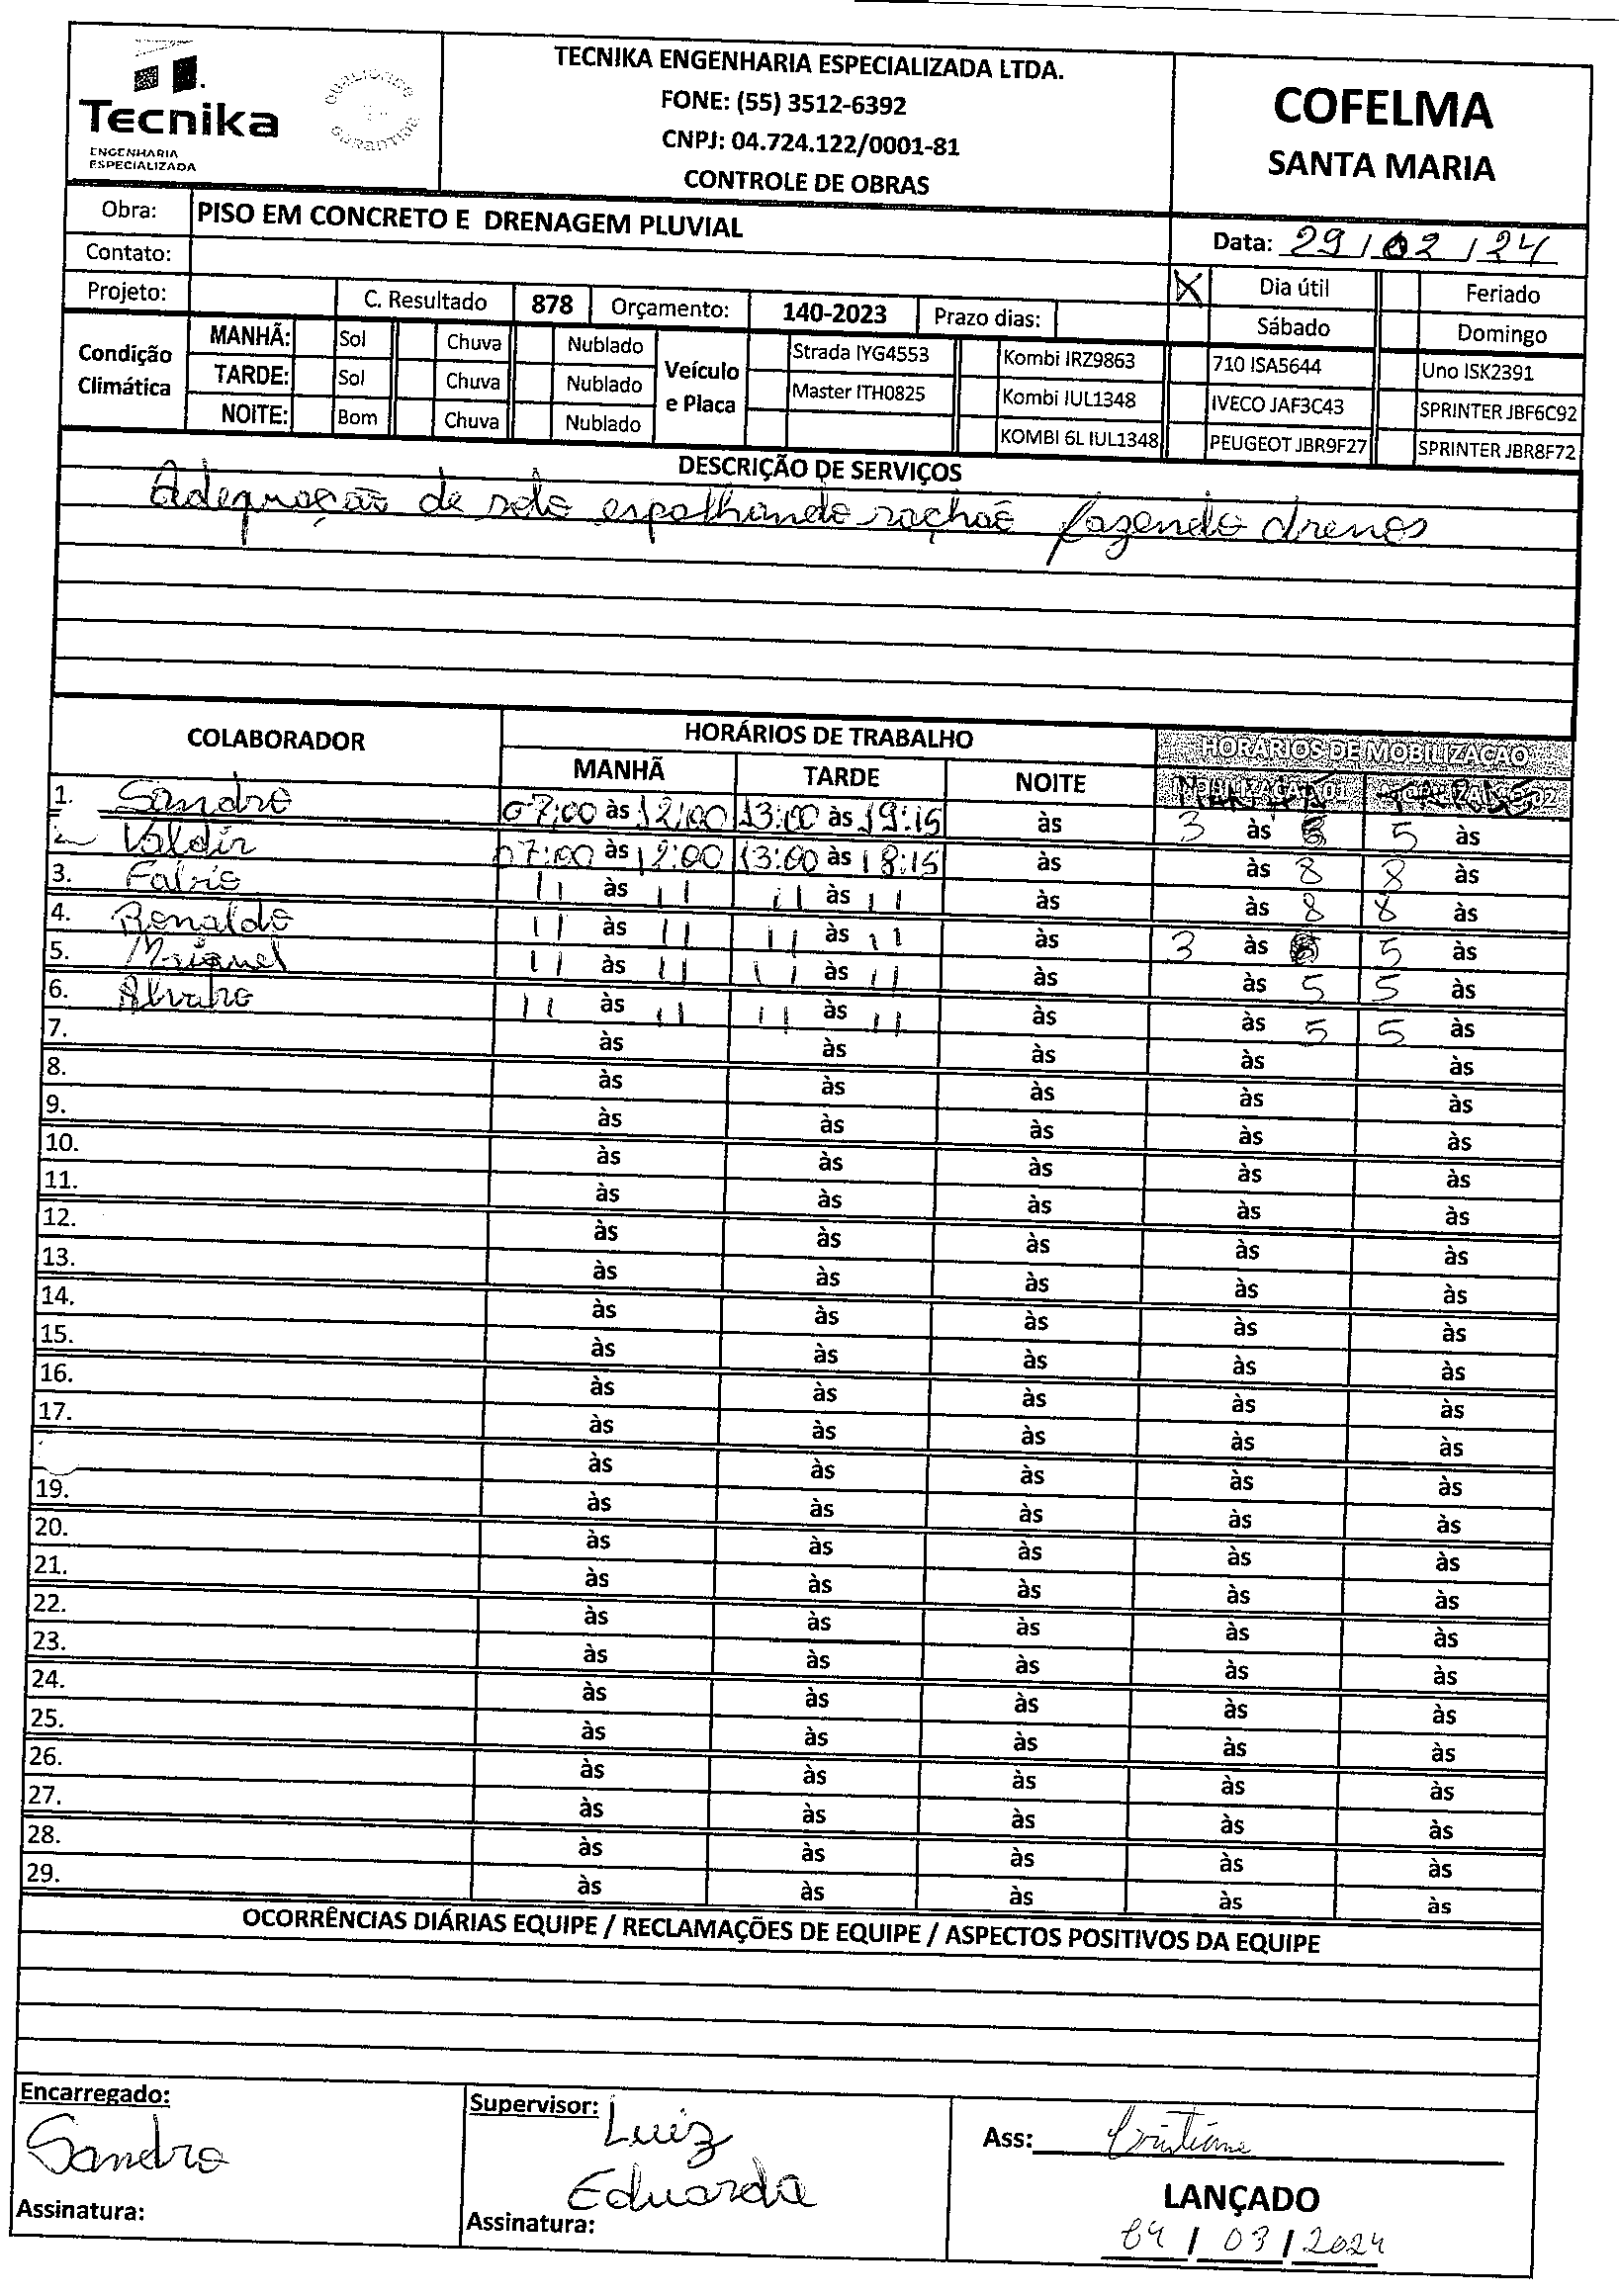 Tecnika
ENGENHARIA
ESPECIALIZADA
TECNIKA ENGENHARIA ESPECIALIZADA LTDA.
FONE: (55) 3512-6392
CNPJ: 04.724.122/0001-81
CONTROLE DE OBRAS
COFELMA
SANTA MARIA
Obra: PISO EM CONCRETO E DRENAGEM PLUVIAL
Data: 29/02/24
Contato:
X Dia útil Feriado
Projeto: C. Resultado 878 Orçamento: 140-2023 Prazo dias: Sábado Domingo
Condição Climática
MANHÃ: Sol Chuva Nublado
TARDE: Sol Chuva Nublado
NOITE: Bom Chuva Nublado
Veículo e Placa
Strada IYG4553 Kombi IRZ9863 710 ISA5644 Uno ISK2391
Master ITH0825 Kombi IUL1348 IVECO JAF3C43 SPRINTER JBF6C92
KOMBI 6L IUL1348 PEUGEOT JBR9F27 SPRINTER JBR8F72
DESCRIÇÃO DE SERVIÇOS
Adequação de solo espalhando rachão fazendo drenos
COLABORADOR HORÁRIOS DE TRABALHO HORÁRIOS DE MOBILIZAÇÃO
MANHÃ TARDE NOITE
1. Sandro 07:00 às 12:00 13:00 às 19:15 às 3 às 5 às
2. Valdir 07:00 às 12:00 13:00 às 18:15 às às 8 8 às
3. Fabio 11 às 11 11 às 11 às às 8 8 às
4. Ronaldo 11 às 11 11 às 11 às 3 às 5 às
5. Miguel 11 às 11 11 às 11 às às 5 5 às
6. Alvaro 11 às 11 11 às 11 às às 5 5 às
7. às às às às às
8. às às às às às
9. às às às às às
10. às às às às às
11. às às às às às
12. às às às às às
13. às às às às às
14. às às às às às
15. às às às às às
16. às às às às às
17. às às às às às
às às às às às
19. às às às às às
20. às às às às às
21. às às às às às
22. às às às às às
23. às às às às às
24. às às às às às
25. às às às às às
26. às às às às às
27. às às às às às
28. às às às às às
29. às às às às às
OCORRÊNCIAS DIÁRIAS EQUIPE / RECLAMAÇÕES DE EQUIPE / ASPECTOS POSITIVOS DA EQUIPE
Encarregado:
Sandro
Assinatura:
Supervisor: Luiz
Eduarda
Assinatura:
Ass: Cristiane
LANÇADO
04 / 03 / 2024